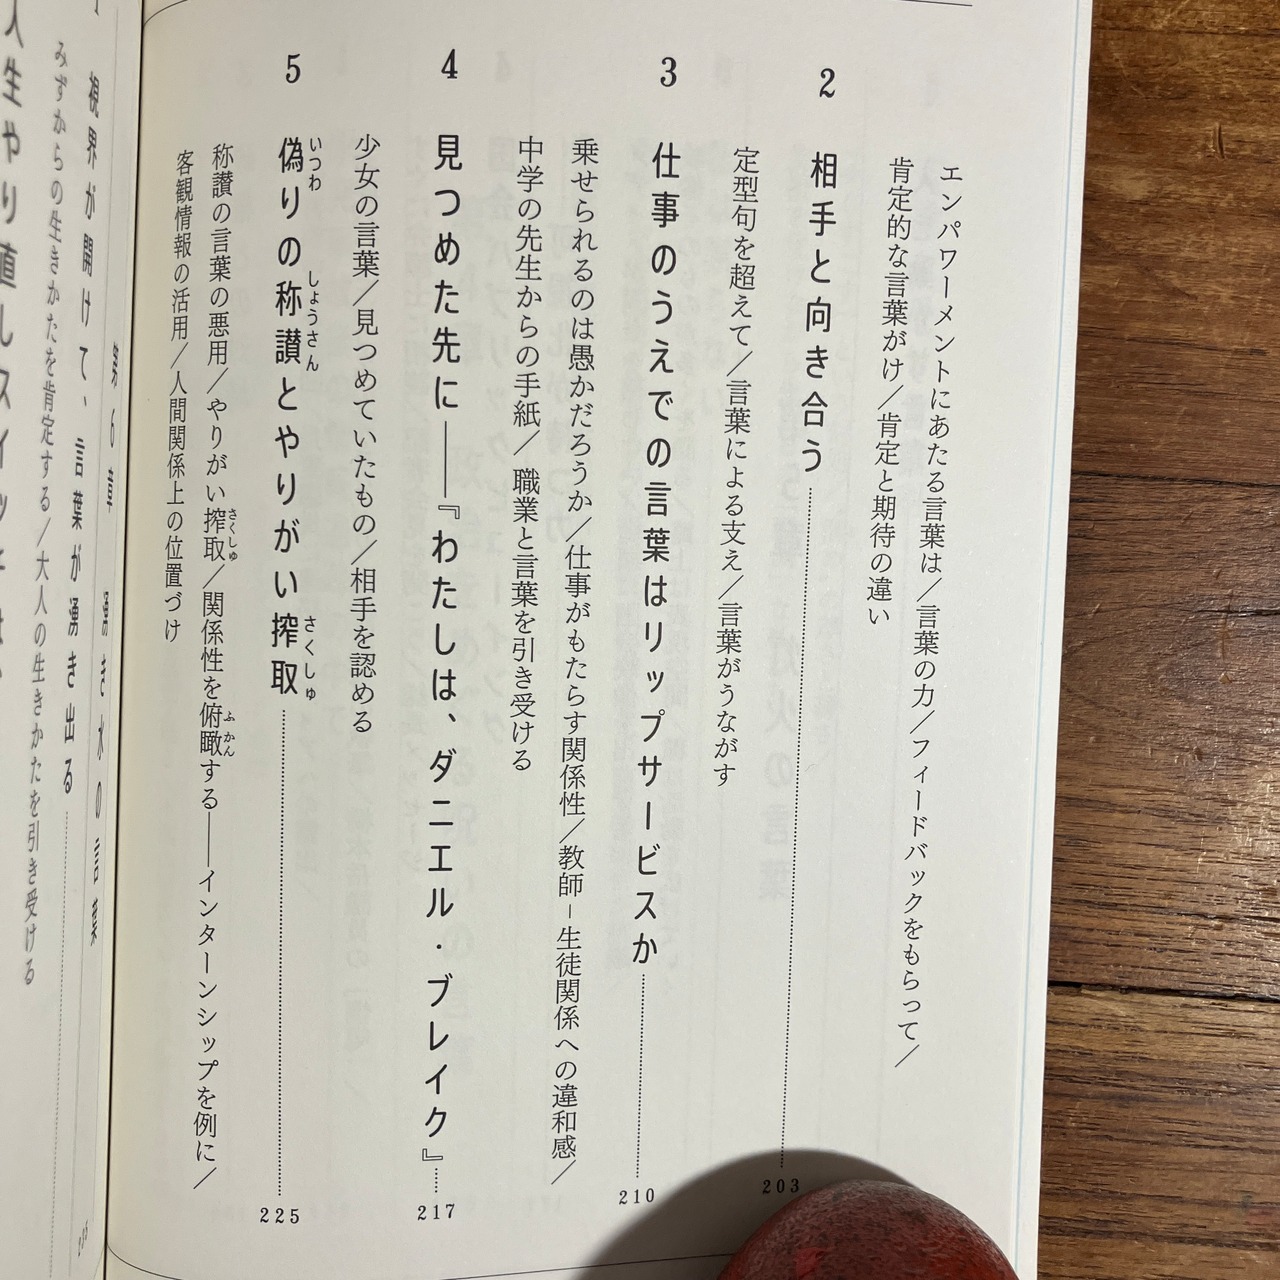 エンパワーメントにあたる言葉は／言葉の力／フィードバックをもらって／
肯定的な言葉がけ／肯定と期待の違い
2 相手と向き合う 203
定型句を超えて／言葉による支え／言葉がうながす
3 仕事のうえでの言葉はリップサービスか 210
乗せられるのは愚かだろうか／仕事がもたらす関係性／教師－生徒関係への違和感／
中学の先生からの手紙／職業と言葉を引き受ける
4 見つめた先に――『わたしは、ダニエル・ブレイク』 217
少女の言葉／見つめていたもの／相手を認める
5 偽りの称讃とやりがい搾取 225
いつわ しょうさん さくしゅ
称讃の言葉の悪用／やりがい搾取／関係性を俯瞰する――インターンシップを例に／
さくしゅ ふかん
客観情報の活用／人間関係上の位置づけ
第6章 湧き水の言葉
1 視界が開けて、言葉が湧き出る
みずからの生きかたを肯定する／大人の生きかたを引き受ける
人生やり直しスイッチはない